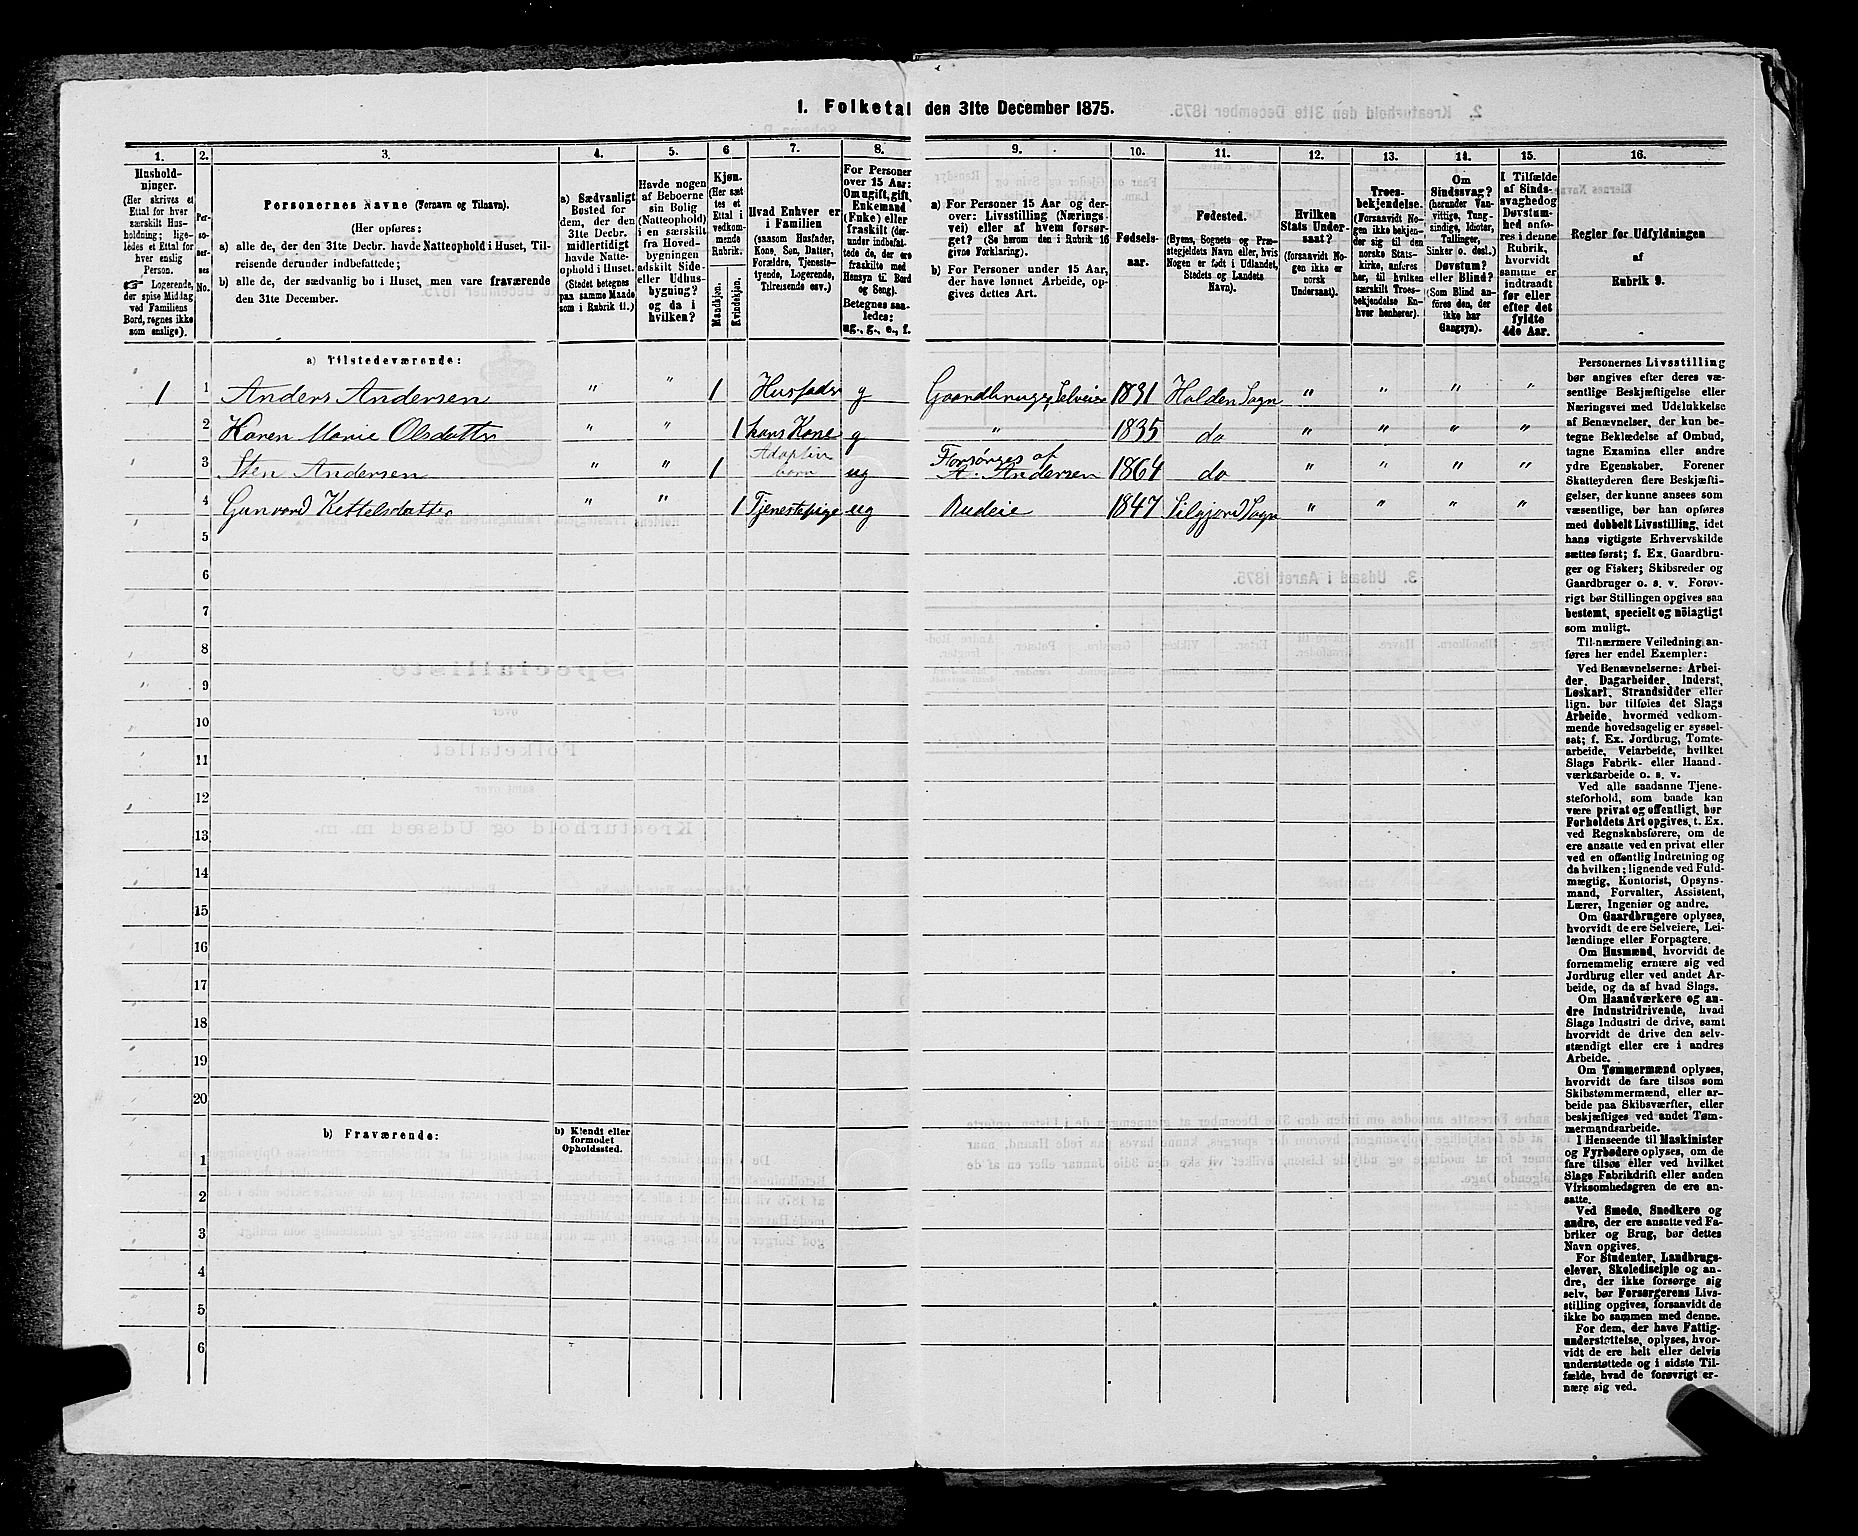 1. Folketal den 31te December 1875.
1. 2. 3. 4. 5. 6 7. 8. 9. 10. 11. 12. 13. 14. 15. 16.
Hushold-
ninger.
(Her skrives et
Ettal for hver
særskilt Hus-
holdning; lige-
ledes et Ettal for
hver enslig
Person.
☞ Logerende,
der spise Middag
ved Familiens
Bord, regnes ikke
som enslige).
Per-
so-
ner-
nes
No.
Personernes Navne (Fornavn og Tilnavn).
(Her opføres:
a) alle de, der den 31te Decbr. havde Natteophold i Huset, Til-
reisende derunder indbefattede;
b) alle de, der sædvanlig bo i Huset, men vare fraværende
den 31te December.
a) Sædvanligt
Bosted for
dem, der den
31te Decbr.
midlertidigt
havde Natte-
ophold i Huset.
(Stedet betegnes
paa samme Maade
som i Rubrik 11.)
Havde nogen
af Beboerne
sin Bolig
(Natteophold)
i en særskilt
fra Hoved-
bygningen
adskilt Side-
eller Udhus-
bygning?
og da i
hvilken?
Kjøn.
(Her sæt
tes et
Ettal i
vedkom-
mende
Rubrik.
Mandkjøn.
Kvindekjøn.
Hvad Enhver er
i Familien
(saasom Husfader,
Kone, Søn, Datter,
Forældre, Tjeneste-
tyende, Logerende,
Tilreisende osv.)
For Personer
over 15 Aar:
Om ugift, gift,
Enkemand
(Enke) eller
fraskilt (der-
under indbefat-
tede de, der ere
fraskilte med
Hensyn til Bord
og Seng).
Betegnes saa-
ledes:
ug., g., e., f.
a) For Personer 15 Aar og der-
over: Livsstilling (Nærings-
vei) eller af hvem forsør-
get? (Se herom den i Rubrik 16
givne Forklaring).
b) For Personer under 15 Aar,
der have lønnet Arbeide, op-
gives dettes Art.
Fødsels-
aar.
Fødested.
(Byens, Sognets og Præ-
stegjeldets Navn eller, hvis
Nogen er født i Udlandet,
Stedets og Landets
Navn).
Hvilken
Stats Under-
saat?
(forsaavidt No-
gen ikke er
norsk
Undersaat).
Troes-
bekjendelse.
(Forsaavidt No-
gen ikke bekjen-
der sig til den
norske Stats-
kirke, anføres
her, til hvilken
særskilt Troes-
bekjendelse En-
hver henhører).
Om
Sindssvag?
(herunder Van-
vittige, Tung-
sindige, Idioter,
Tullinger,
Sinker o. desl.).
Døvstum?
eller Blind?
(Som Blind an-
føres den, der
ikke har
Gangsyn).
I Tilfælde
af Sinds-
svaghed og
Døvstum-
hed anfø-
res i denne
Rubrik,
hvorvidt
samme er
indtraadt
før eller
efter det
fyldte
4de Aar.
Regler for Udfyldningen
af
Rubrik 9.
a) Tilstedeværende:
1 1 Anders Andersen " " 1 Husfader g Gaardbruger Selveier 1831 Holden Sogn " " " "
2 Karen Marie Olsdatter " " 1 hans Kone g " 1835 do " " " "
3 Sten Andersen " " 1 Adoptivbarn ug Forsørges af A. Andersen 1864 do " " " "
4 Gunvord Kettelsdatter " " 1 Tjenestepige ug Budeie 1847 Silgjord Sogn " " " "
5
6
7
8
9
10
11
12
13
14
15
16
17
18
19
20
b) Fraværende:
b) Kjendt eller
formodet
Opholdssted.
1
2
3
4
5
6
Personernes Livsstilling
bør angives efter deres væ-
sentlige Beskjæftigelse eller
Næringsvei med Udelukkelse
af Benævnelser, der kun be-
tegne Beklædelse af Ombud,
tagne Examina eller andre
ydre Egenskaber. Forener
Skatteyderen flere Beskjæfti-
gelser, der kunne ansees som
væsentlige, bør han opføres
med dobbelt Livsstilling, idet
hans vigtigste Erhvervskilde
sættes først; f. Ex. Gaardbru-
ger og Fisker; Skibsreder og
Gaardbruger o. s. v. Forøv-
rigt bør Stillingen opgives saa
bestemt, specielt og nöiagtigt
som muligt.
Til nærmere Veiledning an-
føres her endel Exempler:
Ved Benævnelserne: Arbei-
der, Dagarbeider, Inderst,
Løskarl, Strandsidder eller
lign. bør tilføies det Slags
Arbeide, hvormed vedkom-
mende hovedsagelig er syssel-
sat; f. Ex. Jordbrug, Tomte-
arbeide, Veiarbeide, hvilket
Slags Fabrik- eller Haand-
værksarbeide o. s. v.
Ved alle saadanne Tjene-
steforhold, som baade kan
være privat og offentligt, bør
Forholdets Art opgives, t. Ex.
ved Regnskabsførere, om de
ere ansatte ved en privat eller
ved en offentlig Indretning og
da hvilken; lignende ved Fuld-
mægtig, Kontorist, Opsyns-
mand, Forvalter, Assistent,
Lærer, Ingeniør og andre.
Om Gaardbrugere oplyses,
hvorvidt de ere Selveiere, Lei-
lændinge eller Forpagtere.
Om Husmænd, hvorvidt de
fornemmelig ernære sig ved
Jordbrug eller ved andet Ar-
beide, og da af hvad Slags.
Om Haandværkere og an-
dre Industridrivende, hvad
Slags Industri de drive, samt
hvorvidt de drive den selv-
stændigt eller ere i andres
Arbeide.
Om Tømmermænd oplyses,
hvorvidt de fare tilsøs som
Skibstømmermænd, eller ar-
beide paa Skibsværfter, eller
beskjæftiges ved andet Tøm-
mermandsarbeide.
I Henseende til Maskinister
og Fyrbødere oplyses, om de
fare tilsøs eller ved hvilket
Slags Fabrikdrift eller anden
Virksomhedsgren de ere an-
satte.
Ved Smede, Snedkere og
andre, der ere ansatte ved Fa-
briker og Brug, bør dettes
Navn opgives.
For Studenter, Landbrugs-
elever, Skoledisciple og an-
dre, der ikke forsørge sig
selv, bør Forsørgerens Livs-
stilling opgives, forsaavidt de
ikke bo sammen med denne.
For dem, der have Fattig-
understøttelse, oplyses, hvor-
vidt de ere helt eller delvis
understøttede og i sidste Til-
fælde, hvad de forøvrigt er-
nære sig ved.